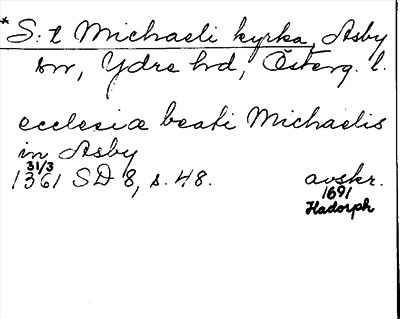 *S:t Michaeli kyrka, Asby
sn, Ydre hd, Österg. l.
ecclesiæ beati Michaelis
in Asby
31/3
1361 SD 8, s. 48. avskr.
1691
Hadorph